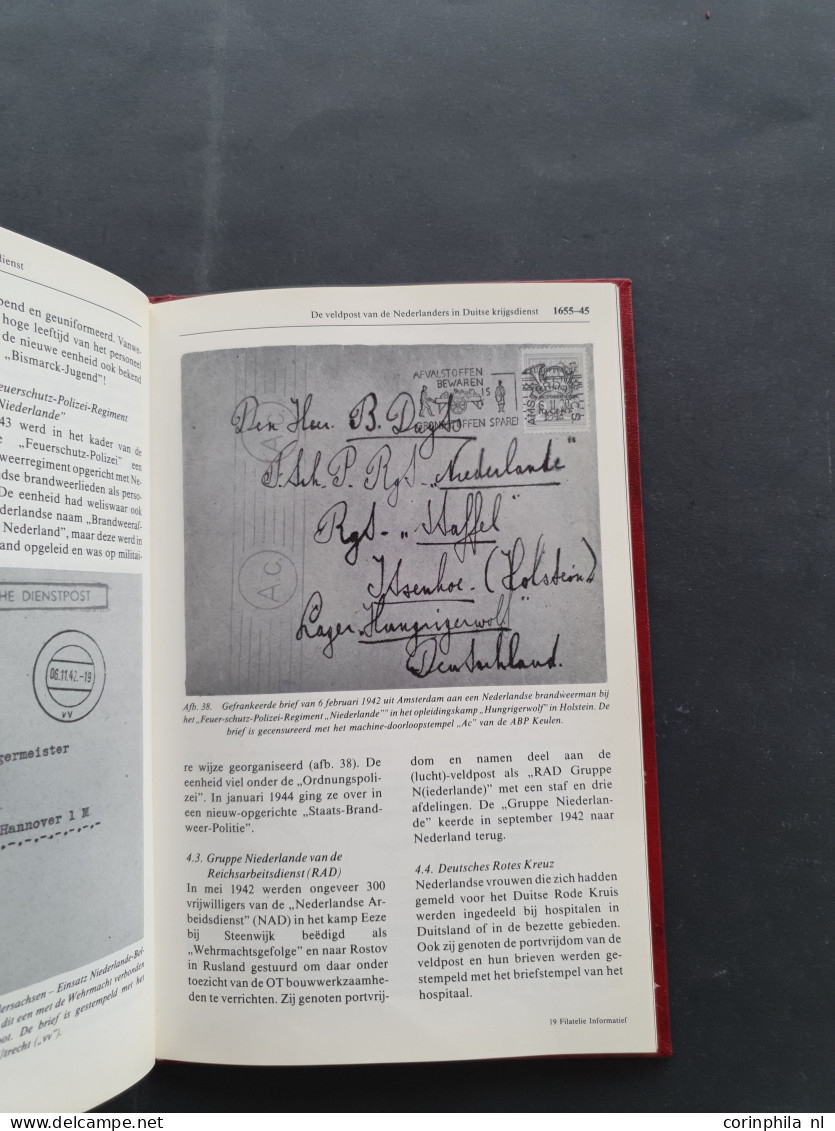 dienst
pend en geuniformeerd. Vanwe-
hoge leeftijd van het personeel
de nieuwe eenheid ook bekend
„Bismarck-Jugend”!
Feuerschutz-Polizei-Regiment
Niederlande”
43 werd in het kader van de
„Feuerschutz-Polizei” een
weerregiment opgericht met Ne-
dse brandweerlieden als perso-
De eenheid had weliswaar ook
derlandse naam „Brandweeraf-
Nederland”, maar deze werd in
and opgeleid en was op militai-
HE DIENSTPOST
06.11.42.-19
vv
germeister
Hannover 1 M.
dersachsen – Einsatz Niederlande-Bei-
dit een met de Wehrmacht verbonden
oot. De brief is gestempeld met het
Utrecht („vv”).
De veldpost van de Nederlanders in Duitse krijgsdienst 1655–45
AFVALSTOFFEN
BEWAREN
IS
GRONDSTOFFEN SPAREN
Ac
Ac
Den Heer B.
F. Sch. P. Rgt. „Niederlande”
Rgt- „Staffel”
Itsenhoe - (Holstein)
Lager „Hungrigerwolf”
Deutschland.
Afb. 38. Gefrankeerde brief van 6 februari 1942 uit Amsterdam aan een Nederlandse brandweerman bij
het „Feuer-schutz-Polizei-Regiment „Niederlande”” in het opleidingskamp „Hungrigerwolf” in Holstein. De
brief is gecensureerd met het machine-doorloopstempel „Ac” van de ABP Keulen.
re wijze georganiseerd (afb. 38). De
eenheid viel onder de „Ordnungspoli-
zei”. In januari 1944 ging ze over in
een nieuw-opgerichte „Staats-Brand-
weer-Politie”.
4.3. Gruppe Niederlande van de
Reichsarbeitsdienst (RAD)
In mei 1942 werden ongeveer 300
vrijwilligers van de „Nederlandse Ar-
beidsdienst” (NAD) in het kamp Eeze
bij Steenwijk beëdigd als
„Wehrmachtsgefolge” en naar Rostov
in Rusland gestuurd om daar onder
toezicht van de OT bouwwerkzaamhe-
den te verrichten. Zij genoten portvrij-
dom en namen deel aan de
(lucht)-veldpost als „RAD Gruppe
N(iederlande)” met een staf en drie
afdelingen. De „Gruppe Niederlan-
de” keerde in september 1942 naar
Nederland terug.
4.4. Deutsches Rotes Kreuz
Nederlandse vrouwen die zich hadden
gemeld voor het Duitse Rode Kruis
werden ingedeeld bij hospitalen in
Duitsland of in de bezette gebieden.
Ook zij genoten de portvrijdom van de
veldpost en hun brieven werden ge-
stempeld met het briefstempel van het
hospitaal.
19 Filatelie Informatief
corinphila nl